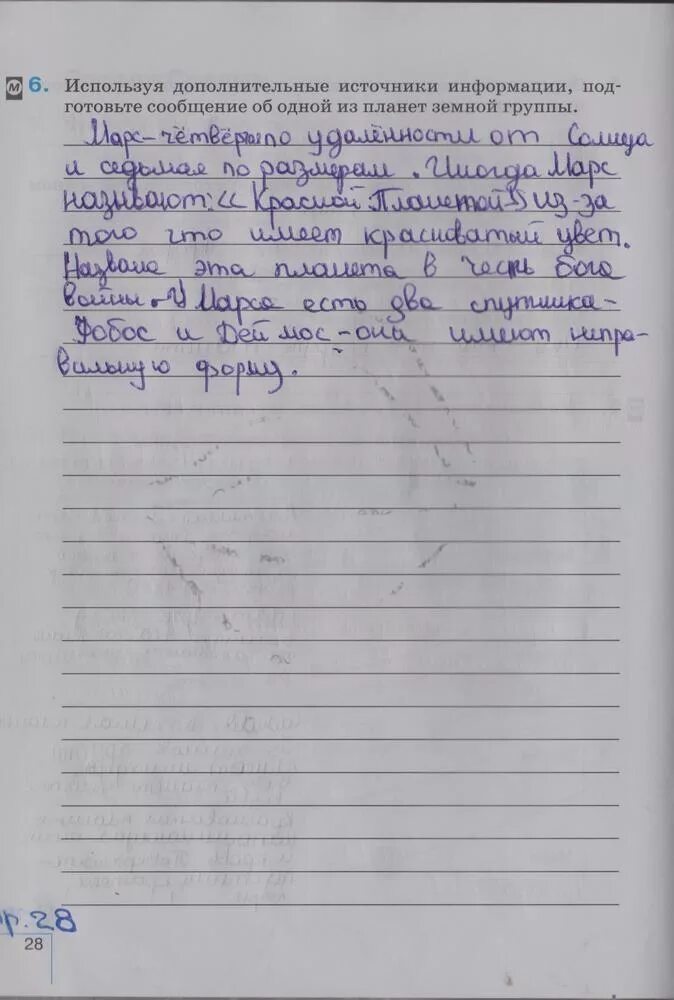 М 6. Используя дополнительные источники информации, под-
готовьте сообщение об одной из планет земной группы.
Марс-четвёрты по удалённости от Солнца
и седьмая по размерам. Иногда Марс
называют: « Красной Планетой» из-за
того что имеет красноватый цвет.
Названа эта планета в честь бога
войны. У Марса есть два спутника-
Фобос и Деймос-они имеют непра-
вильную форму.
р.28
28